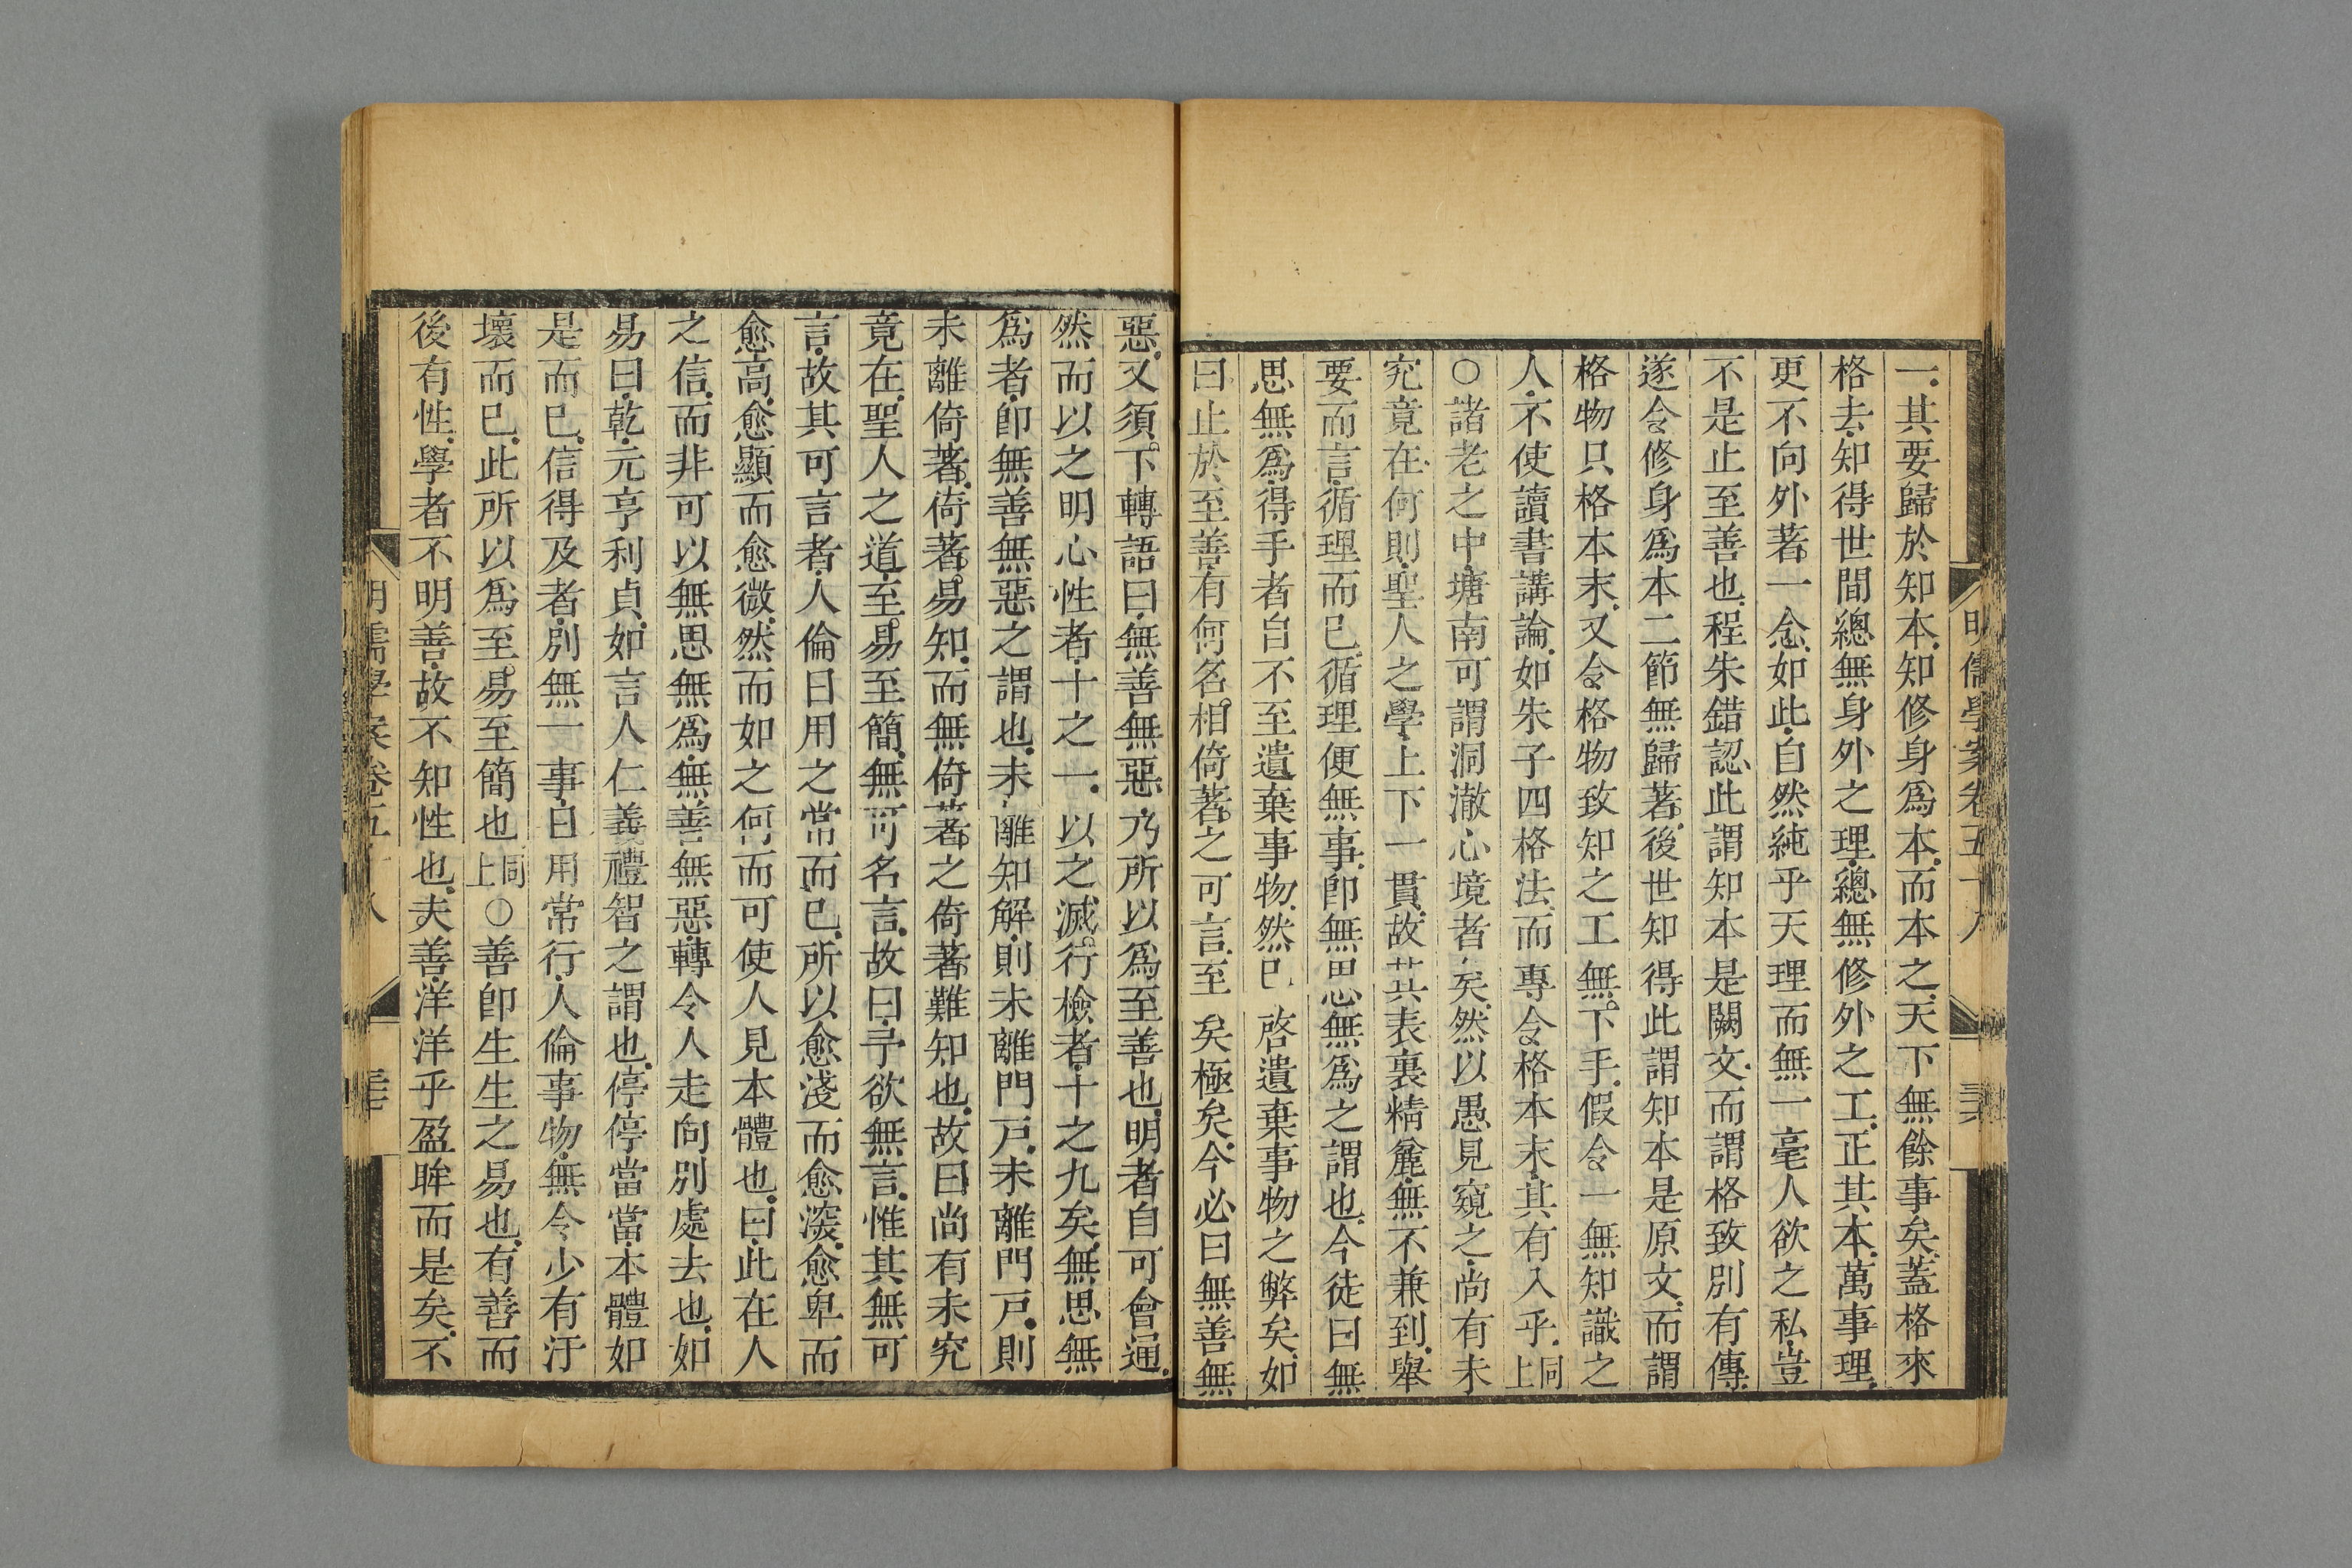 一其要歸於知本知修身爲本而本之天下無餘事矣蓋格來
格去知得世間總無身外之理總無修外之工正其本萬事理
更不向外著一念如此自然純乎天理而無一毫人欲之私豈
不是止至善也程朱錯認此謂知本是闕文而謂格致別有傳
遂令修身爲本二節無歸著後世知得此謂知本是原文而謂
格物只格本末又令格物致知之工無下手假令一無知識之
人不使讀書講論如朱子四格法而專令格本末其有入乎同上
○諸老之中塘南可謂洞澈心境者矣然以愚見窺之尚有未
究竟在何則聖人之學上下一貫故其表裏精麄無不兼到舉
要而言循理而已循理便無事卽無思無爲之謂也今徒曰無
思無爲得手者自不至遺棄事物然已啓遺棄事物之弊矣如
曰止於至善有何名相倚著之可言至矣極矣今必曰無善無
明儒學案卷五十八
惡又須下轉語曰無善無惡乃所以爲至善也明者自可會通
然而以之明心性者十之一以之滅行檢者十之九矣無思無
爲者卽無善無惡之謂也未離知解則未離門戸未離門戸則
未離倚著倚著易知而無倚著之倚著難知也故曰尚有未究
竟在聖人之道至易至簡無可名言故曰予欲無言惟其無可
言故其可言者人倫日用之常而已所以愈淺而愈深愈卑而
愈高愈顯而愈微然而如之何而可使人見本體也曰此在人
之信而非可以無思無爲無善無惡轉令人走向別處去也如
易曰乾元亨利貞如言人仁義禮智之謂也停停當當本體如
是而已信得及者別無一事日用常行人倫事物無令少有汙
壞而已此所以爲至易至簡也同上○善卽生生之易也有善而
後有性學者不明善故不知性也夫善洋洋乎盈眸而是矣不
明儒學案卷五十八